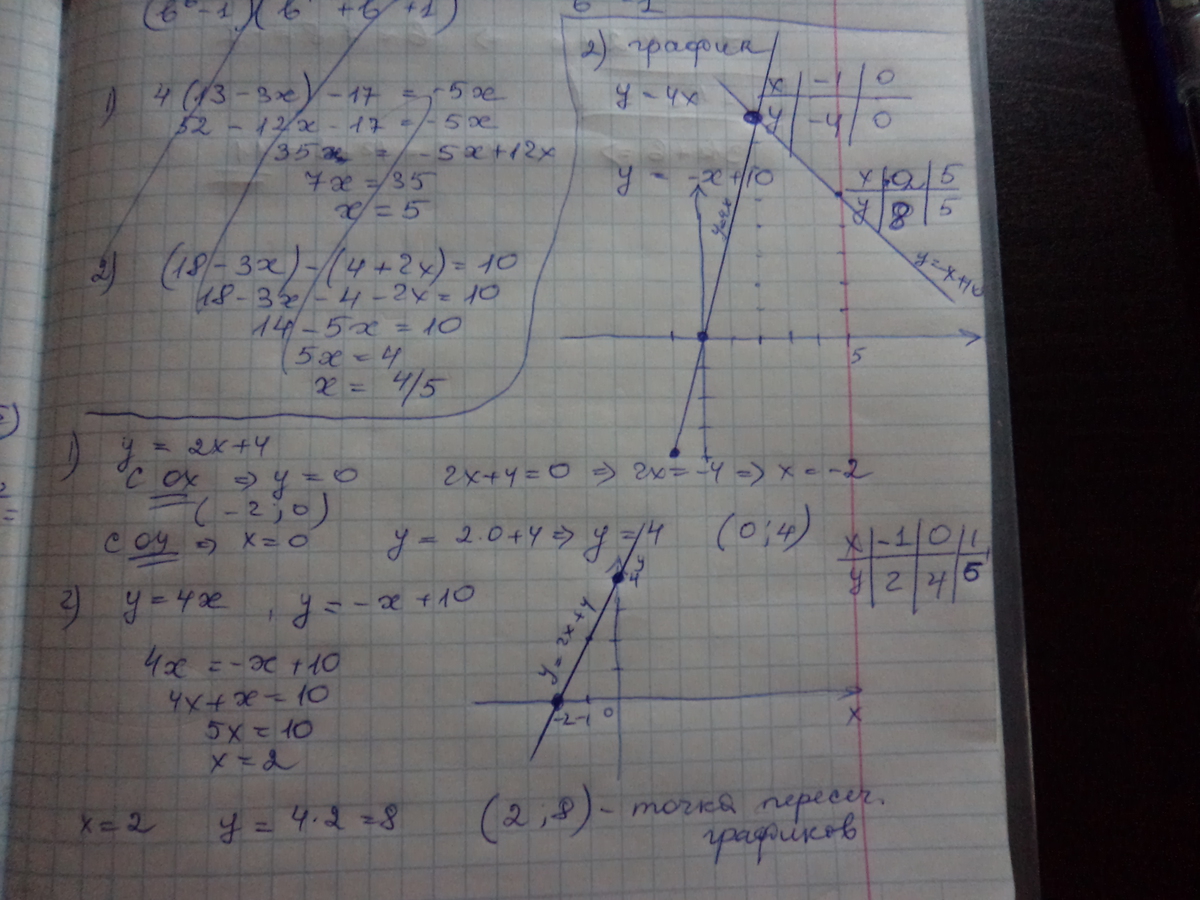 1) 4(13-3x)-17=-5x
52-12x-17=-5x
35 = -5x+12x
7x=35
x=5
2) (18-3x)-(4+2x)=10
18-3x-4-2x=10
14-5x=10
5x=4
x= 4/5
2) график
y-4x
x | -1 | 0
y | -4 | 0
y = -x+10
x | 2 | 5
y | 8 | 5
y=4x
y=-x+10
5
1) y = 2x+4
с ox ⇒ y=0 2x+4=0 ⇒ 2x=-4 ⇒ x=-2
(-2;0)
с oy ⇒ x=0 y=2·0+4 ⇒ y=4 (0;4)
x | -1 | 0 | 1
y | 2 | 4 | 5
2) y=4x , y=-x+10
4x=-x+10
4x+x=10
5x=10
x=2
y
4
y=2x+4
-2 -1 0
x
x=2 y=4·2=8 (2;8)- точка пересеч.
графиков